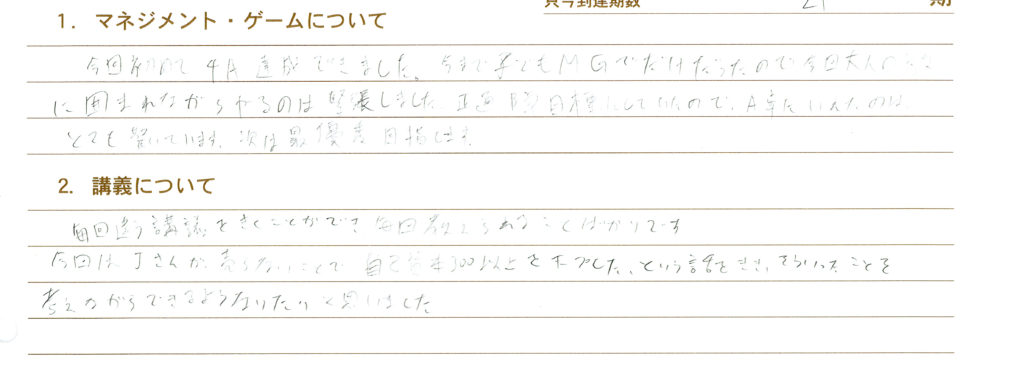 只今到達期数 21 期
1. マネジメント・ゲームについて
今回初めて 4A 達成できました。今まで子どもMGでだけだったので今回大人の
に囲まれながらやるのは緊張しました。正直 目標にしていたので、A卓に いえたのは
とても驚いています。次は最優秀目指します
2. 講義について
毎回違う講議をきくことができ 毎回教えられることばかりです
今回は、Jさんが、売らないことで、自己資本300以上をキープした、という話をきき、そういったことを
考えながらできるようなりたいと思いました